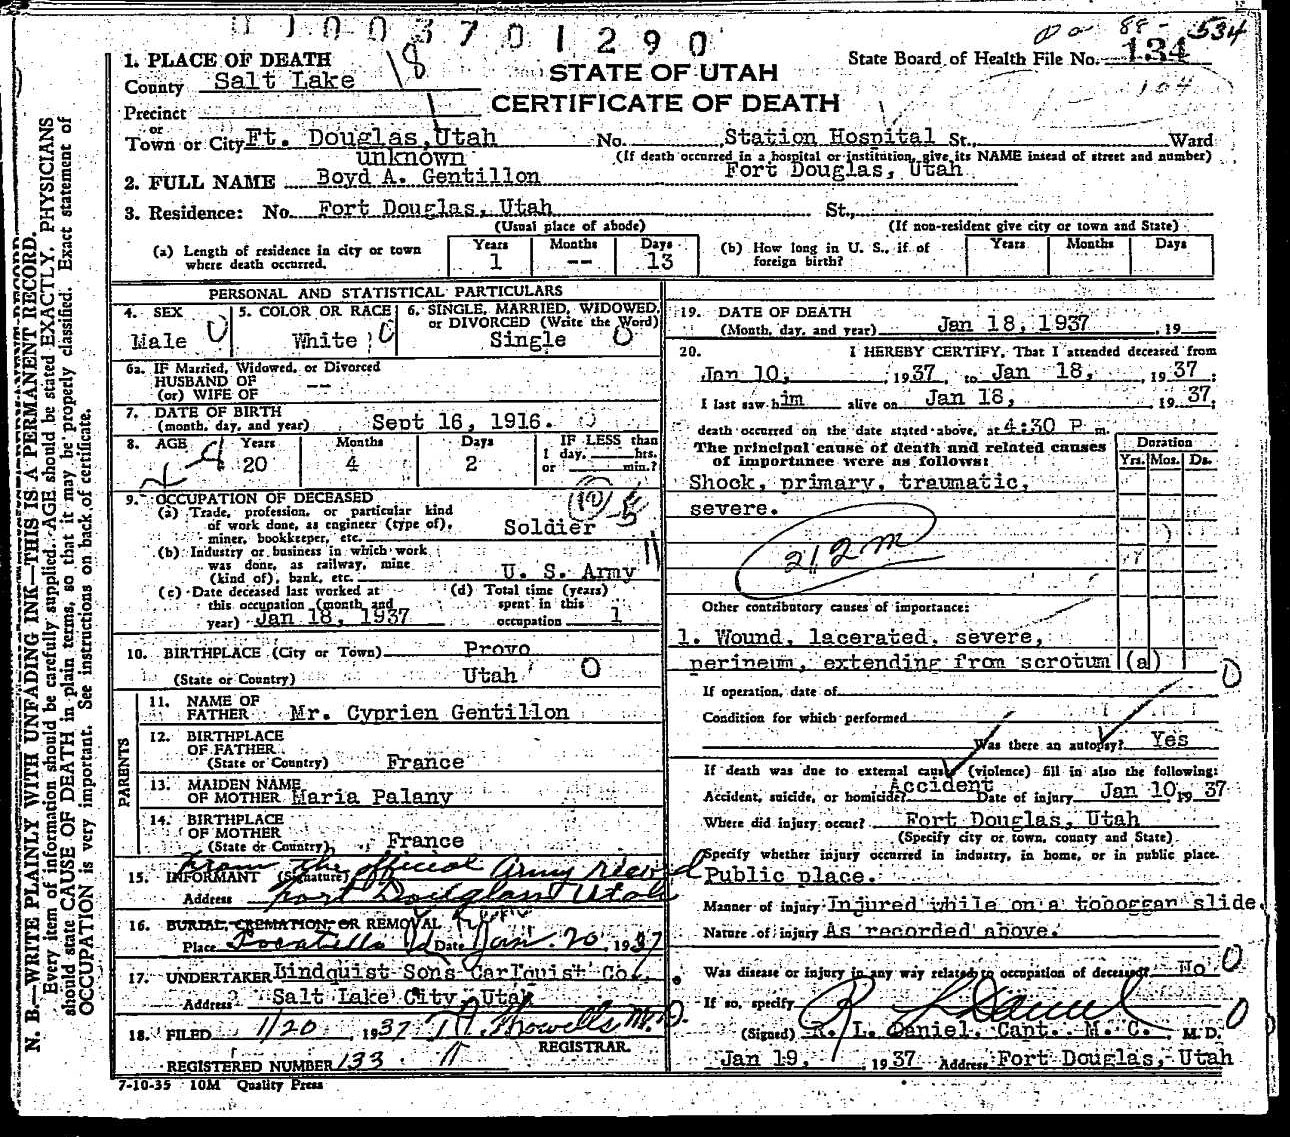 0 1 0 0 3 7 0 1 2 9 0
88- 534
State Board of Health File No. 134
104
STATE OF UTAH
CERTIFICATE OF DEATH
1. PLACE OF DEATH
County Salt Lake 18
Precinct
or
Town or City Ft. Douglas, Utah No. Station Hospital St., Ward
(If death occurred in a hospital or institution, give its NAME instead of street and number)
unknown
2. FULL NAME Boyd A. Gentillon Fort Douglas, Utah
3. Residence: No. Fort Douglas, Utah St.,
(Usual place of abode) (If non-resident give city or town and State)
(a) Length of residence in city or town where death occurred. Years 1 Months -- Days 13
(b) How long in U. S., if of foreign birth? Years Months Days
PERSONAL AND STATISTICAL PARTICULARS
4. SEX Male 0
5. COLOR OR RACE White 0
6. SINGLE, MARRIED, WIDOWED, or DIVORCED (Write the Word) Single 0
6a. IF Married, Widowed, or Divorced
HUSBAND OF --
(or) WIFE OF
7. DATE OF BIRTH
(month, day, and year) Sept 16, 1916.
8. AGE Years 20 Months 4 Days 2
IF LESS than
1 day, hrs.
or min.?
9. OCCUPATION OF DECEASED
(a) Trade, profession, or particular kind
of work done, as engineer (type of),
miner, bookkeeper, etc. Soldier
(b) Industry or business in which work
was done, as railway, mine
(kind of), bank, etc. U. S. Army 11
(c) Date deceased last worked at
this occupation (month and
year) Jan 18, 1937
(d) Total time (years)
spent in this
occupation 1
10. BIRTHPLACE (City or Town) Provo
(State or Country) Utah 0
PARENTS
11. NAME OF
FATHER Mr. Cyprien Gentillon
12. BIRTHPLACE
OF FATHER
(State or Country) France
13. MAIDEN NAME
OF MOTHER Maria Palany
14. BIRTHPLACE
OF MOTHER
(State or Country) France
15. INFORMANT (Signature) From the official Army record
Address Fort Douglas Utah
16. BURIAL, CREMATION, OR REMOVAL
Place Pocatello Id Date Jan. 20, 1937
17. UNDERTAKER Lindquist Sons Carlquist Co.
Address Salt Lake City, Utah
18. FILED 1/20 1937 Howells M.D.
REGISTRAR.
REGISTERED NUMBER 133
7-10-35 10M Quality Press
19. DATE OF DEATH
(Month, day, and year) Jan 18, 1937 , 19
20. I HEREBY CERTIFY, That I attended deceased from
Jan 10, , 1937, to Jan 18, , 1937;
I last saw him alive on Jan 18, 1937;
death occurred on the date stated above, at 4:30 P m.
The principal cause of death and related causes
of importance were as follows:
Duration
Yrs. Mos. Ds.
Shock, primary, traumatic,
severe.
212m
Other contributory causes of importance:
1. Wound, lacerated, severe,
perineum, extending from scrotum (a)
0
If operation, date of
Condition for which performed
Was there an autopsy? Yes
If death was due to external cause (violence) fill in also the following:
Accident, suicide, or homicide? Accident Date of injury Jan 10, 1937
Where did injury occur? Fort Douglas, Utah
(Specify city or town, county and State)
Specify whether injury occurred in industry, in home, or in public place.
Public place.
Manner of injury Injured while on a toboggan slide.
Nature of injury As recorded above.
Was disease or injury in any way related to occupation of deceased? No 0
If so, specify R L Daniel
(Signed) R. L. Daniel, Capt. M. C. M. D. 0
Jan 19, 1937 Address Fort Douglas, Utah
N. B.—WRITE PLAINLY WITH UNFADING INK—THIS IS A PERMANENT RECORD.
Every item of information should be carefully supplied. AGE should be stated EXACTLY. PHYSICIANS
should state CAUSE OF DEATH in plain terms, so that it may be properly classified. Exact statement of
OCCUPATION is very important. See instructions on back of certificate.